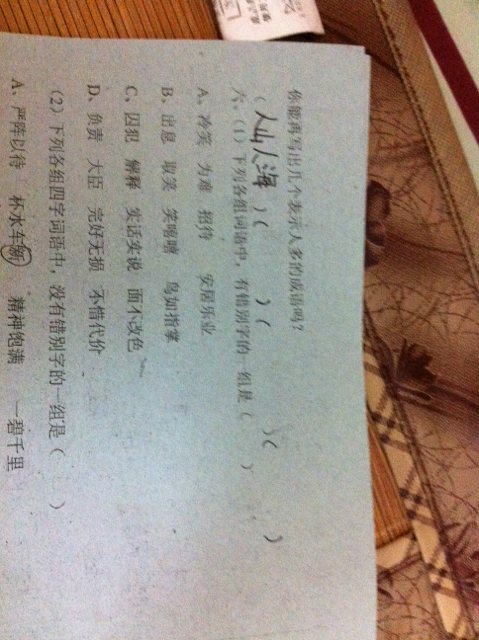 你能再写出几个表示人多的成语吗?
(人山人海)( )( )( )
六、(1)下列各组词语中,有错别字的一组是( )
A、冷笑 为难 招待 安居乐业
B、出息 取笑 笑嘻嘻 鸟如指掌
C、囚犯 解释 实话实说 面不改色
D、负责 大臣 完好无损 不惜代价
(2)下列各组四字词语中,没有错别字的一组是( )
A、严阵以待 杯水车薪 精神饱满 一碧千里